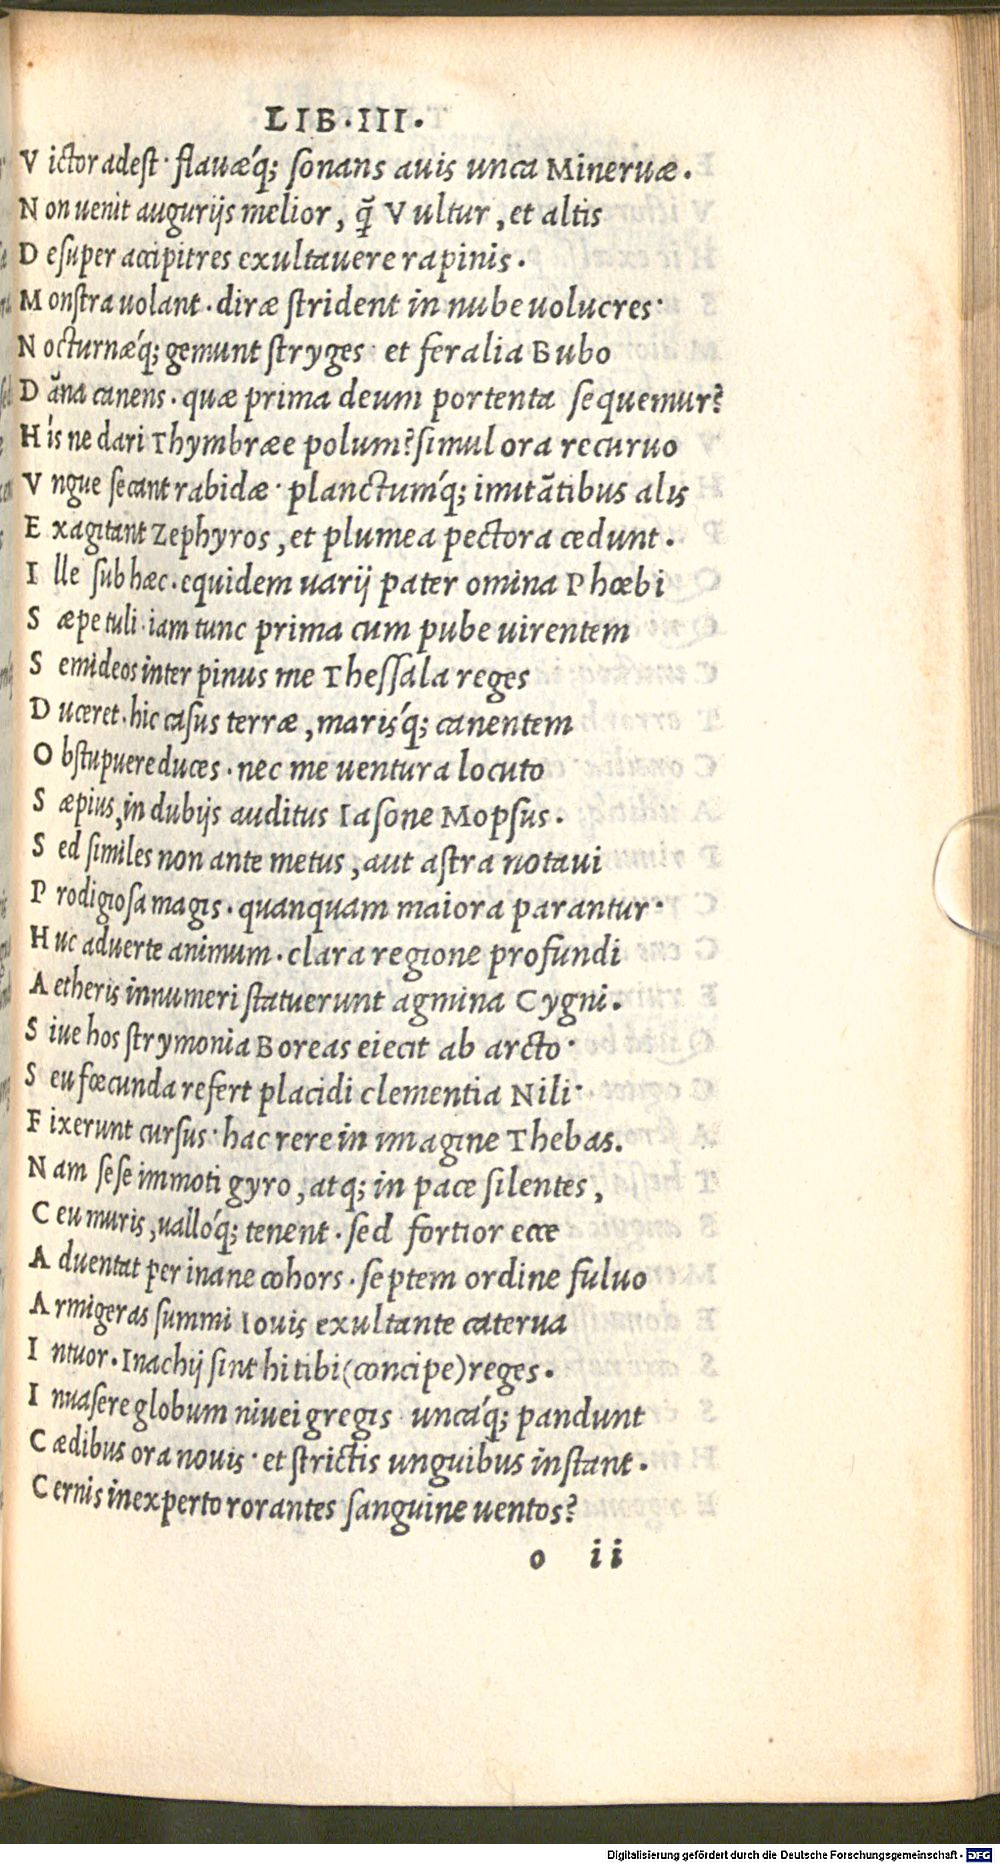 LIB·III·
V ictor adest· flauæq́; sonans auis unca Mineruæ.
N on uenit augurijs melior, q̃ Vultur, et altis
D esuper accipitres exultauere rapinis.
M onstra uolant. diræ strident in nube uolucres·
N octurnæq́; gemunt stryges· et feralia Bubo
D ãna canens. quæ prima deum portenta sequemur?
H is ne dari Thymbræe polum? simul ora recuruo
V ngue secant rabidæ· planctumq́; imitãtibus alis
E xagitant Zephyros, et plumea pectora cædunt.
I lle sub hæc. equidem uarij pater omina Phœbi
S æpe tuli. iam tunc prima cum pube uirentem
S emideos inter pinus me Thessala reges
D uceret. hic casus terræ, marisq́; canentem
O bstupuere duces. nec me uentura locuto
S æpius, in dubijs auditus Iasone Mopsus.
S ed similes non ante metus, aut astra notaui
P rodigiosa magis. quanquam maiora parantur·
H uc aduerte animum. clara regione profundi
A etheris innumeri statuerunt agmina Cygni.
S iue hos strymonia Boreas eiecit ab arcto·
S eu fœcunda refert placidi clementia Nili·
F ixerunt cursus· hac rere in imagine Thebas.
N am sese immoti gyro, atq; in pace silentes,
C eu muris, uallóq; tenent. sed fortior ecce
A duentat per inane cohors. septem ordine fuluo
A rmigeras summi Iouis exultante caterua
I ntuor. Inachij sint hi tibi (concipe) reges.
I nuasere globum niuei gregis· uncaq́; pandunt
C ædibus ora nouis· et strictis unguibus instant.
C ernis inexperto rorantes sanguine uentos?
o ii
Digitalisierung gefördert durch die Deutsche Forschungsgemeinschaft - DFG